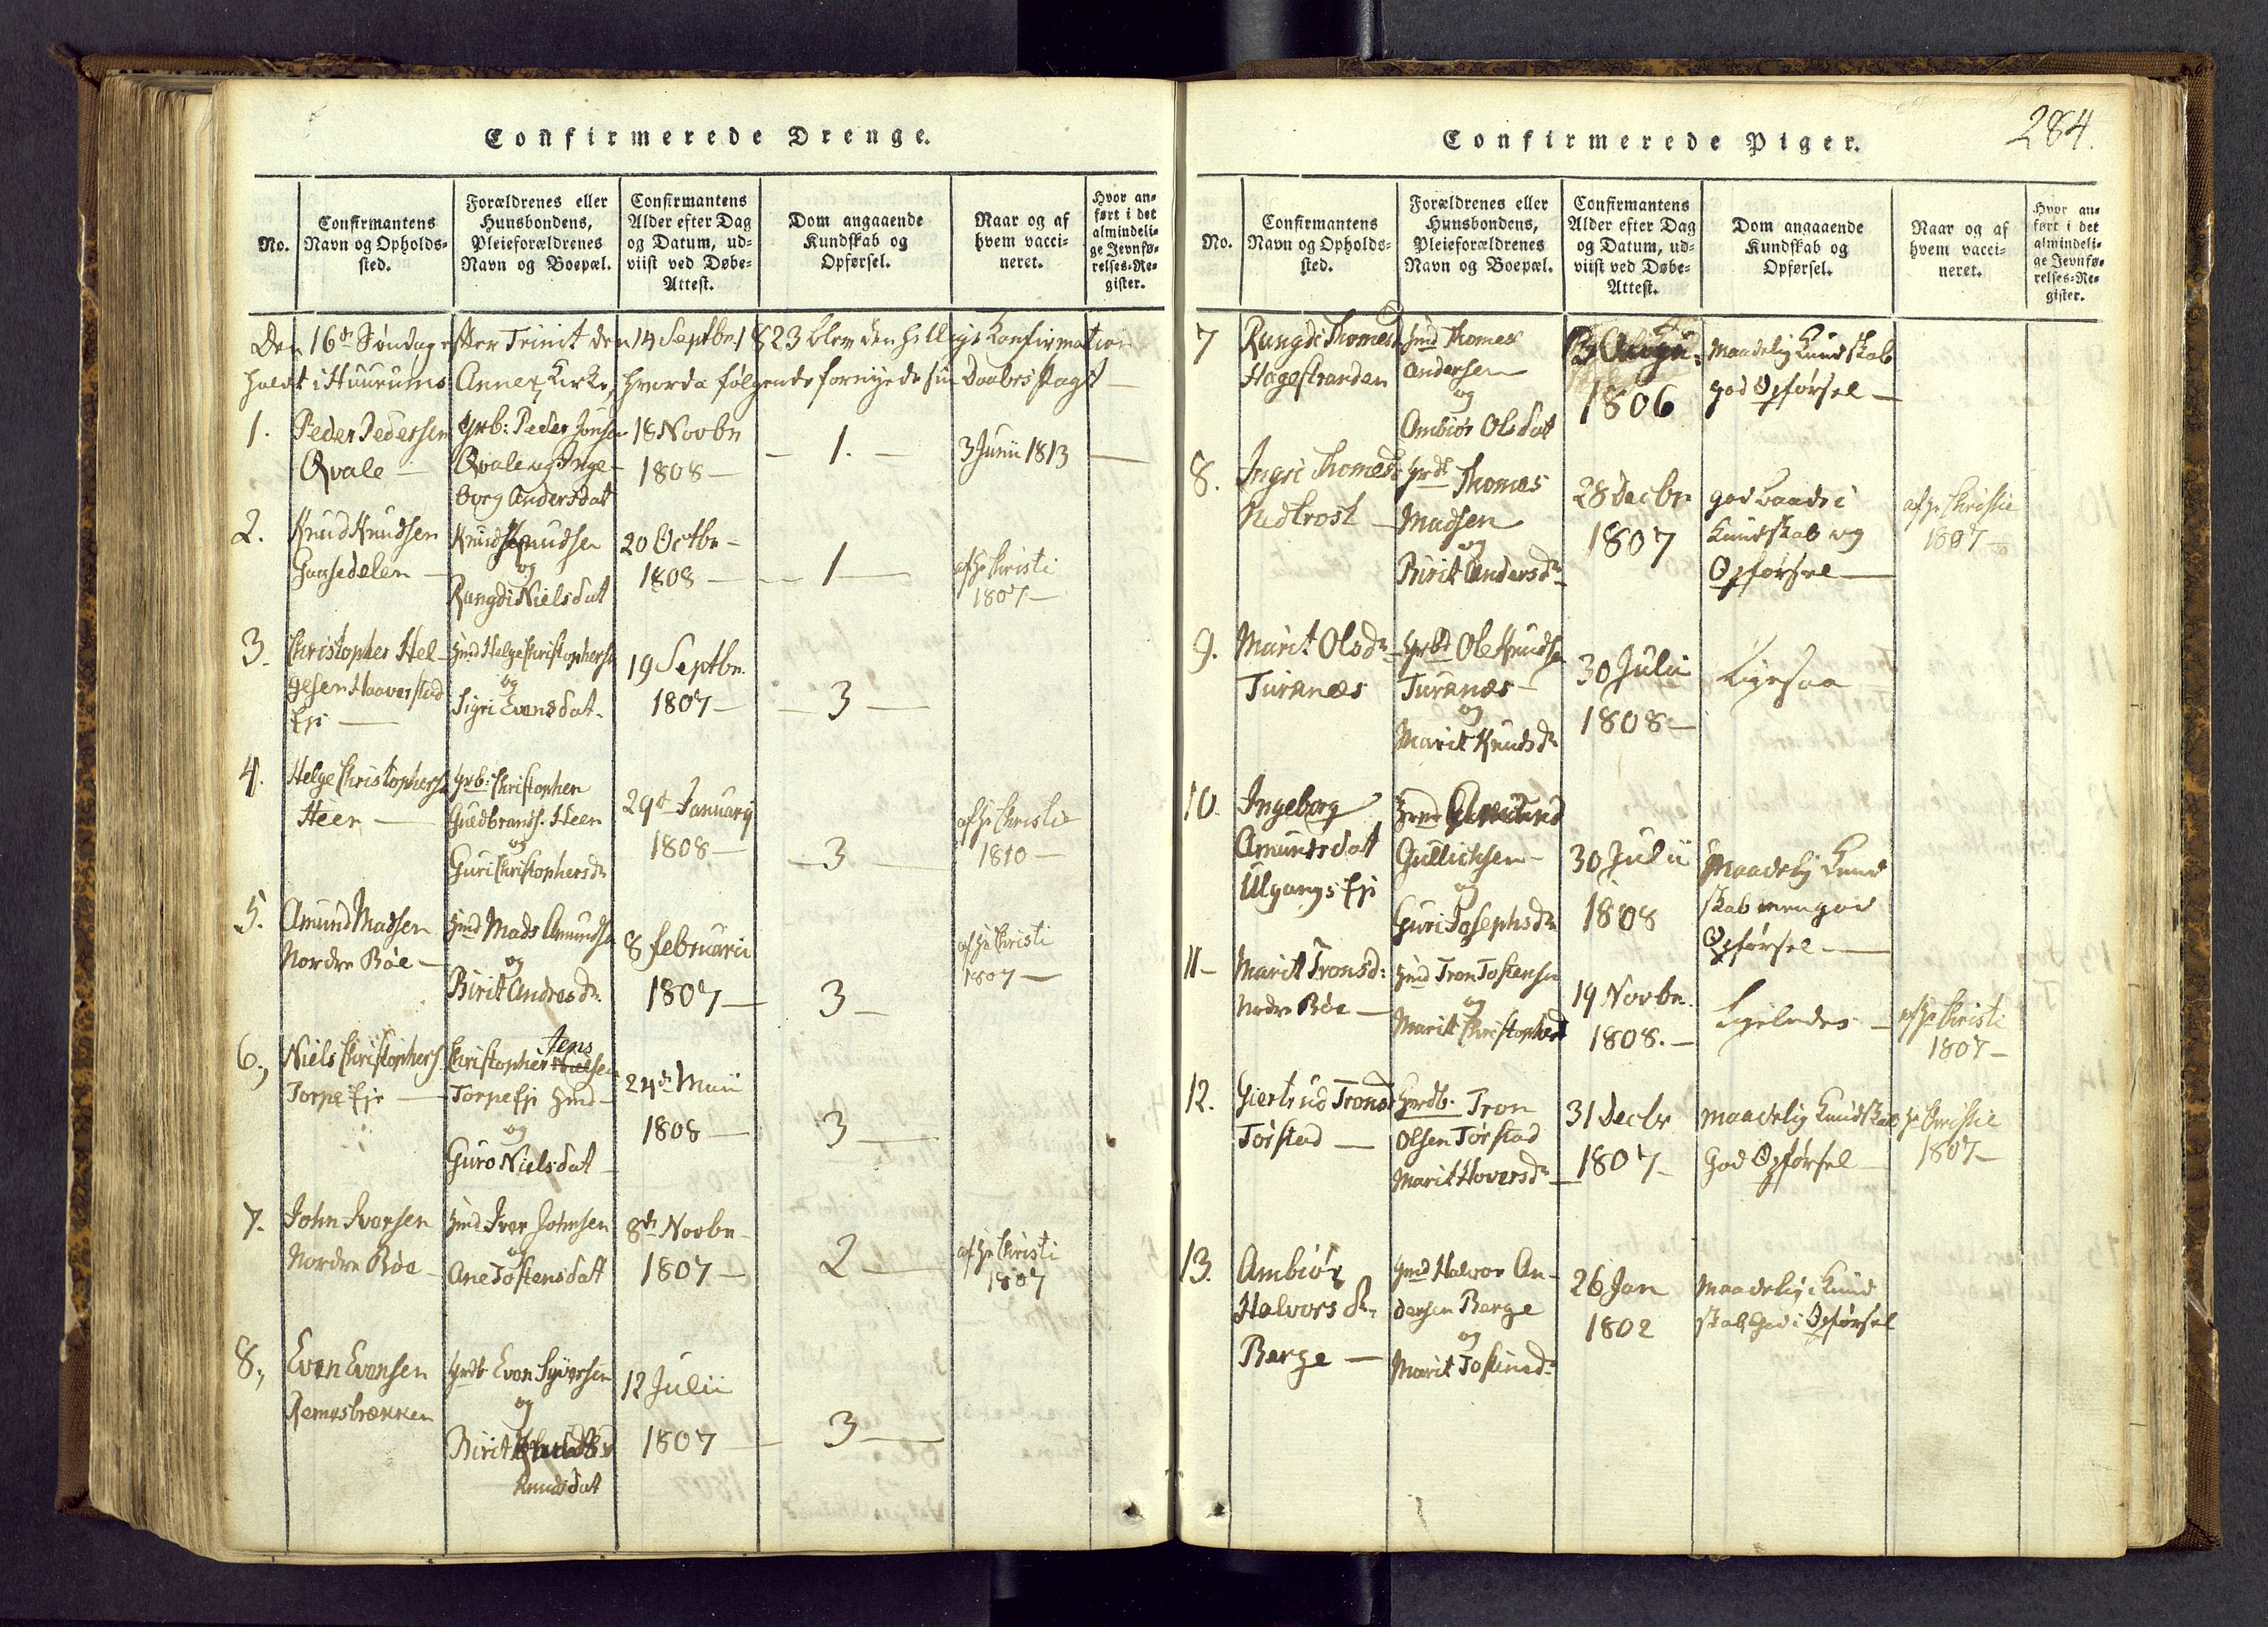 Confirmerede Drenge.
No.
Confirmantens
Navn og Opholds-
sted.
Forældrenes eller
Huusbondens,
Pleieforældrenes
Navn og Boepæl.
Confirmantens
Alder efter Dag
og Datum, ud-
viist ved Døbe-
Attest.
Dom angaaende
Kundskab og
Opførsel.
Naar og af
hvem vacci-
neret.
Hvor an-
ført i det
almindeli-
ge Jevnfø-
relses-Re-
gister.
Den 16de Søndag efter Trinit den 14 Septbr 1823 blev den hellige Confirmation
holdt i Huurums Annex Kirke, hvorda følgende fornyede sin Daabes Pagt
1. Peder Pedersen
Qvale
Grb: Peder Jonsen
Qvale og Inge-
borg Andersdat
18 Novbr
1808
1.
3 Junii 1813
2. Knud Knudsen
Gaasedelen
Knud Knudsen
og
Rangdi Nielsdat
20 Octbr
1808
1
af Hr Christi
1807
3. Christopher Hel-
gesen Haaverstad
Eje
Hmd Helge Christophersen
og
Sigri Evensdat.
19 Septbr.
1807
3
4. Helge Christophersen
Heen
Grb: Christopher
Gudbrands. Heen
og
Guri Christophersdr
29de January
1808
3
af Hr Christie
1810
5. Amund Madsen
Nordre Böe
Hmd Mads Amundsen
og
Birit Andresdr.
8 Februarii
1807
3
af Hr Christi
1807
6., Niels Christophers
Torpe Eje
Jens
Christopher
Torpe Eje Hmd
og
Guro Nielsdat
24de Maii
1808
3
7. John Ivarsen
Nordre Böe
Hmd Iver Johnsen
og
Ane Tostensdatt
8de Novbr
1807
2
af Hr Christi
1807
8., Even Evensen
Remesbrækken
Grdb Even Syversen
og
Birit
Knudsdat
12 Julii
1807
3
Confirmerede Piger.
284.
No.
Confirmantens
Navn og Opholds-
sted.
Forældrenes eller
Huusbondens,
Pleieforældrenes
Navn og Boepæl.
Confirmantens
Alder efter Dag
og Datum, ud-
viist ved Døbe-
Attest.
Dom angaaende
Kundskab og
Opførsel.
Naar og af
hvem vacci-
neret.
Hvor an-
ført i det
almindeli-
ge Jevnfø-
relses-Re-
gister.
7 Rangdi Thomesd
Hagestranden
Hmd Thomes
Andersen
og
Ambiör Olsdat
1806
Maadelig Kundskab
god Opförsel
8. Ingri Thomesd
Grdb Thomes
Madsen
og
Birit Andersdr
28 Decbr
1807
god baade i
Kundskab og
Opförsel
af Hr Christie
1807
9. Marit Olsdr
Turanæs
Grbd Ole Knudsen
Turanæs
og
Marit Knudsdr
30 Julii
1808
Ligesaa
10. Ingeborg
Amundsdat
Ulgangs Eje
Hmd Amund
Gullichsen
og
Guri Josephsdr
30 Julii
1808
Maadelig Kund
skab men god
Opförsel
11 Marit Tronsd:
Nordre Böe
Hmd Tron Tostensen
og
Marit Christophersd
19 Novbr.
1808.
Ligeledes
af Hr Christi
1807
12. Giertrud Tronsd
Törstad
Gardb. Tron
Olsen Törstad
Marit Hoversdr
31 Decbr
1807
maadelig Kundskab
God Opförsel
Hr Christie
1807
13. Ambiör
Halvorsdr
Berge
Gmd Halvor An-
dersen Berge
og
Marit Tostensdr
26 Jan
1802
Maadelig i Kund
skab, God i Opförsel